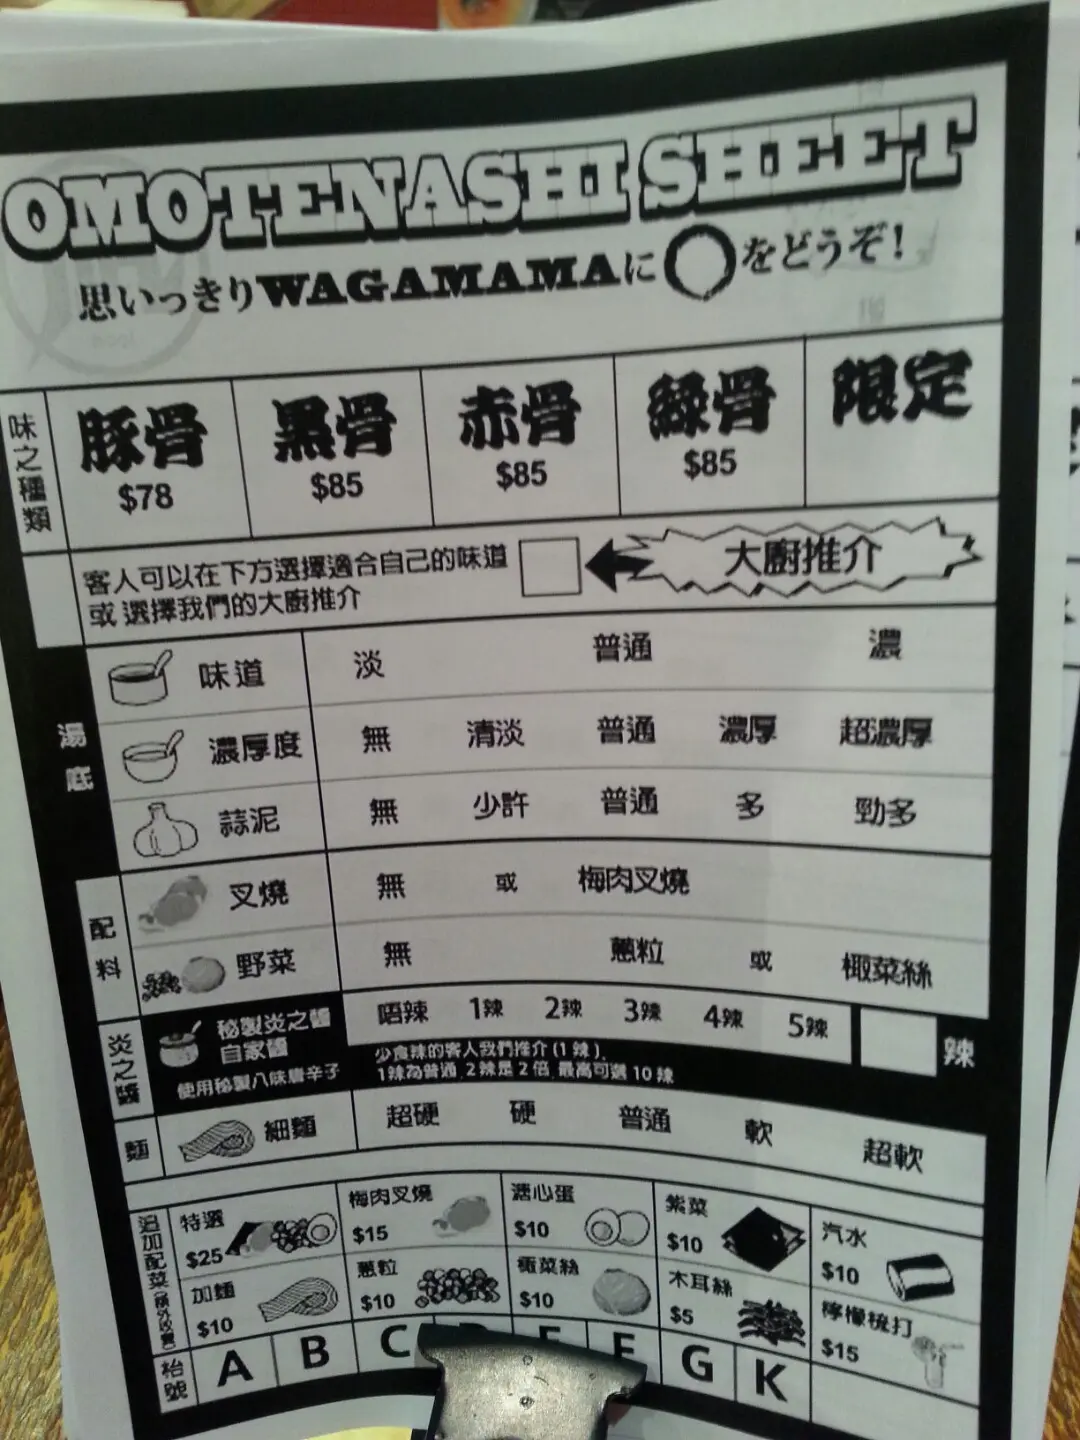 OMOTENASHI SHEET
思いっきりWAGAMAMAに◯をどうぞ！
味之種類
豚骨 黒骨 赤骨 緑骨 限定
$78 $85 $85 $85
客人可以在下方選擇適合自己的味道
或 選擇我們的大廚推介
大廚推介
湯底
味道 淡 普通 濃
濃厚度 無 清淡 普通 濃厚 超濃厚
蒜泥 無 少許 普通 多 勁多
配料
叉燒 無 或 梅肉叉燒
野菜 無 蔥粒 或 椰菜絲
炎之醬
秘製炎之醬 唔辣 1辣 2辣 3辣 4辣 5辣 辣
自家醬
使用秘製八味唐辛子
少食辣的客人我們推介(1辣),
1辣為普通,2辣是2倍,最高可選10辣
麵
細麵 超硬 硬 普通 軟 超軟
追加配菜(額外收費)
特選 梅肉叉燒 溏心蛋 紫菜 汽水
$25 $15 $10 $10 $10
加麵 蔥粒 椰菜絲 木耳絲 檸檬梳打
$10 $10 $10 $5 $15
枱號
A B C G K